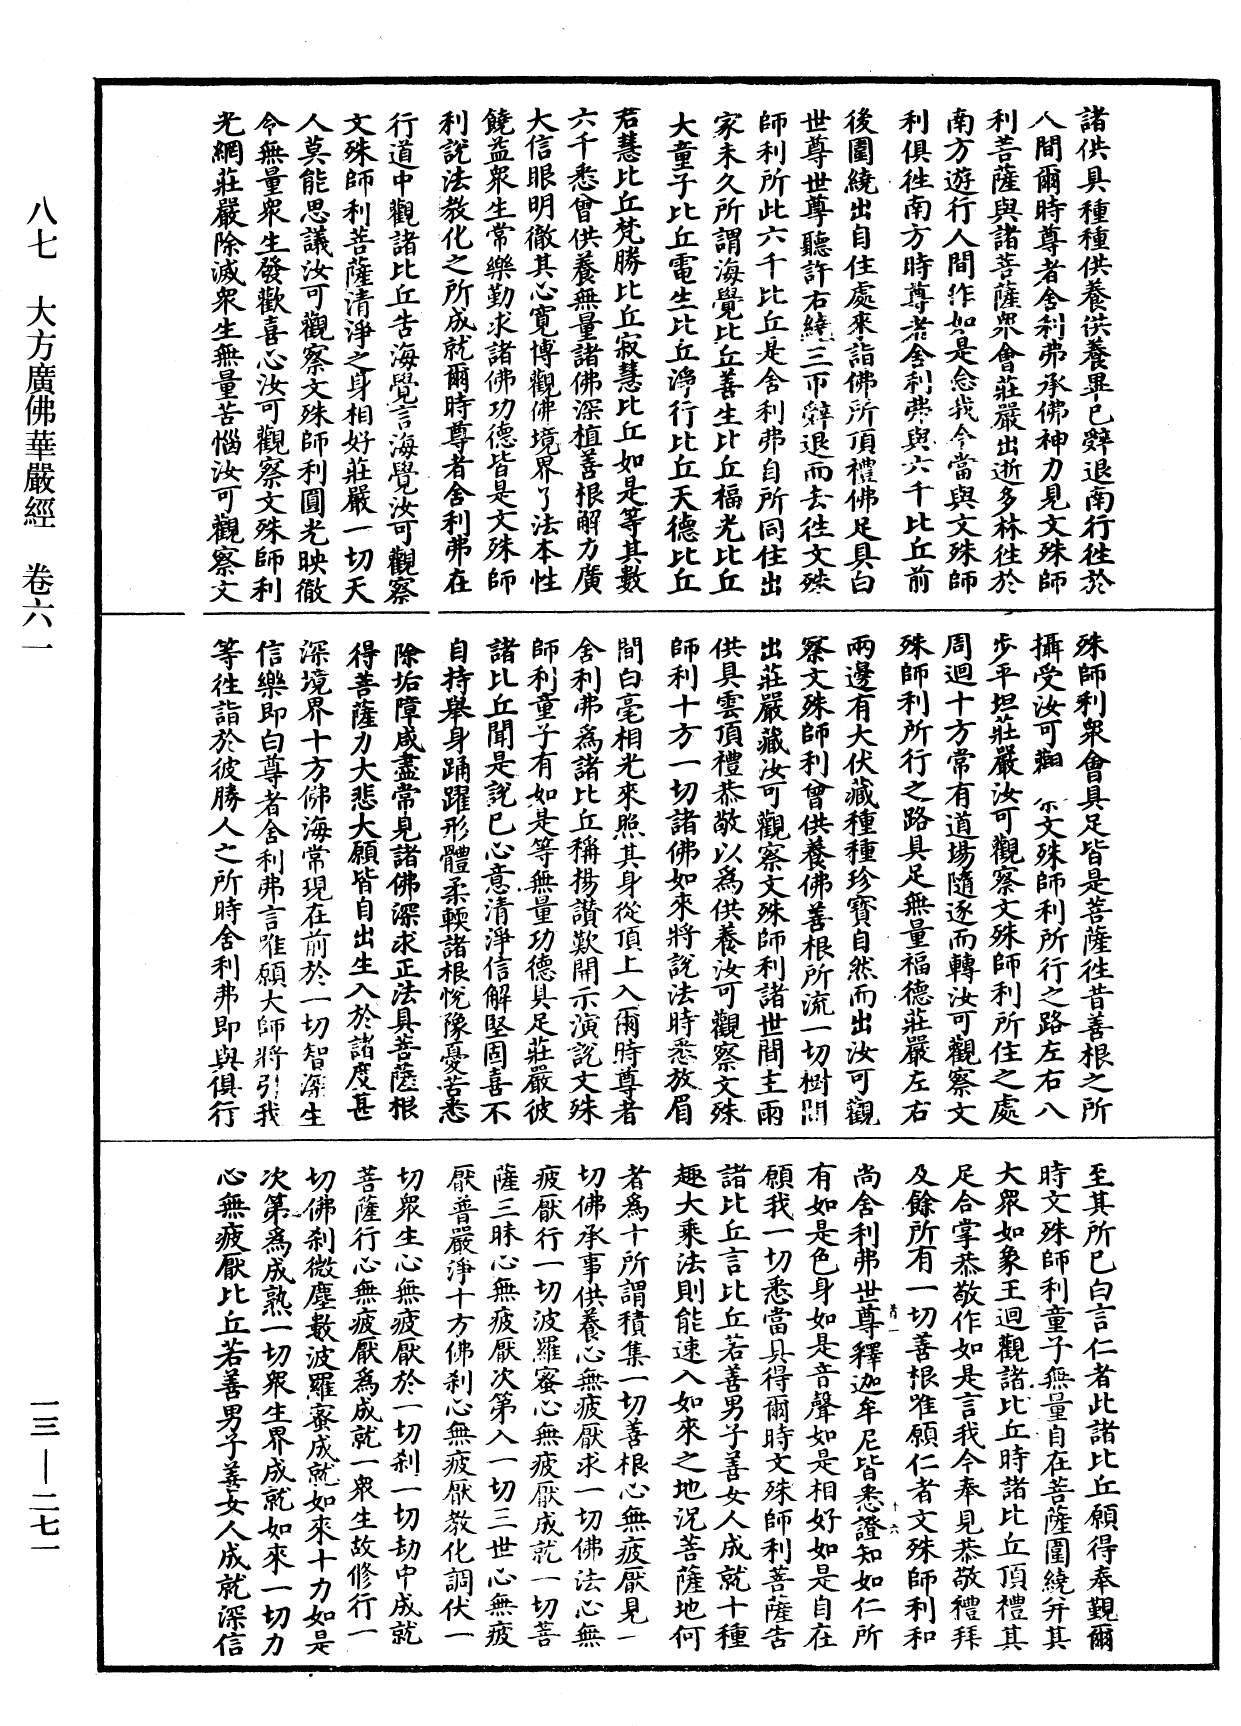 諸供具種種供養供養畢已辭退南行往於
人間爾時尊者舍利弗承佛神力見文殊師
利菩薩與諸菩薩衆會莊嚴出逝多林往於
南方遊行人間作如是念我今當與文殊師
利俱往南方時尊者舍利弗與六千比丘前
後圍繞出自住處來詣佛所頂禮佛足具白
世尊世尊聽許右繞三帀辭退而去往文殊
師利所此六千比丘是舍利弗自所同住出
家未久所謂海覺比丘善生比丘福光比丘
大童子比丘電生比丘淨行比丘天德比丘
君慧比丘梵勝比丘寂慧比丘如是等其數
六千悉曾供養無量諸佛深植善根解力廣
大信眼明徹其心寬博觀佛境界了法本性
饒益衆生常樂勤求諸佛功德皆是文殊師
利說法教化之所成就爾時尊者舍利弗在
行道中觀諸比丘告海覺言海覺汝可觀察
文殊師利菩薩清淨之身相好莊嚴一切天
人莫能思議汝可觀察文殊師利圓光映徹
令無量衆生發歡喜心汝可觀察文殊師利
光網莊嚴除滅衆生無量苦惱汝可觀察文
殊師利衆會具足皆是菩薩往昔善根之所
攝受汝可觀文殊師利所行之路左右八
步平坦莊嚴汝可觀察文殊師利所住之處
周迴十方常有道場隨逐而轉汝可觀察文
殊師利所行之路具足無量福德莊嚴左右
兩邊有大伏藏種種珍寶自然而出汝可觀
察文殊師利曾供養佛善根所流一切樹間
出莊嚴藏汝可觀察文殊師利諸世間主雨
供具雲頂禮恭敬以爲供養汝可觀察文殊
師利十方一切諸佛如來將說法時悉放眉
間白毫相光來照其身從頂上入爾時尊者
舍利弗爲諸比丘稱揚讚歎開示演說文殊
師利童子有如是等無量功德具足莊嚴彼
諸比丘聞是說已心意清淨信解堅固喜不
自持舉身踊躍形體柔輭諸根悅豫憂苦悉
除垢障咸盡常見諸佛深求正法具菩薩根
得菩薩力大悲大願皆自出生入於諸度甚
深境界十方佛海常現在前於一切智深生
信樂即白尊者舍利弗言唯願大師將引我
等往詣於彼勝人之所時舍利弗即與俱行
至其所已白言仁者此諸比丘願得奉覲爾
時文殊師利童子無量自在菩薩圍繞并其
大衆如象王迴觀諸比丘時諸比丘頂禮其
足合掌恭敬作如是言我今奉見恭敬禮拜
及餘所有一切善根唯願仁者文殊師利和
尚舍利弗世尊釋迦牟尼皆悉證知如仁所
有如是色身如是音聲如是相好如是自在
願我一切悉當具得爾時文殊師利菩薩告
諸比丘言比丘若善男子善女人成就十種
趣大乘法則能速入如來之地況菩薩地何
者爲十所謂積集一切善根心無疲厭見一
切佛承事供養心無疲厭求一切佛法心無
疲厭行一切波羅蜜心無疲厭成就一切菩
薩三昧心無疲厭次第入一切三世心無疲
厭普嚴淨十方佛刹心無疲厭教化調伏一
切衆生心無疲厭於一切刹一切劫中成就
菩薩行心無疲厭爲成就一衆生故修行一
切佛刹微塵數波羅蜜成就如來十力如是
次第爲成熟一切衆生界成就如來一切力
心無疲厭比丘若善男子善女人成就深信
八七　大方廣佛華嚴經　卷六一
一三—二七一